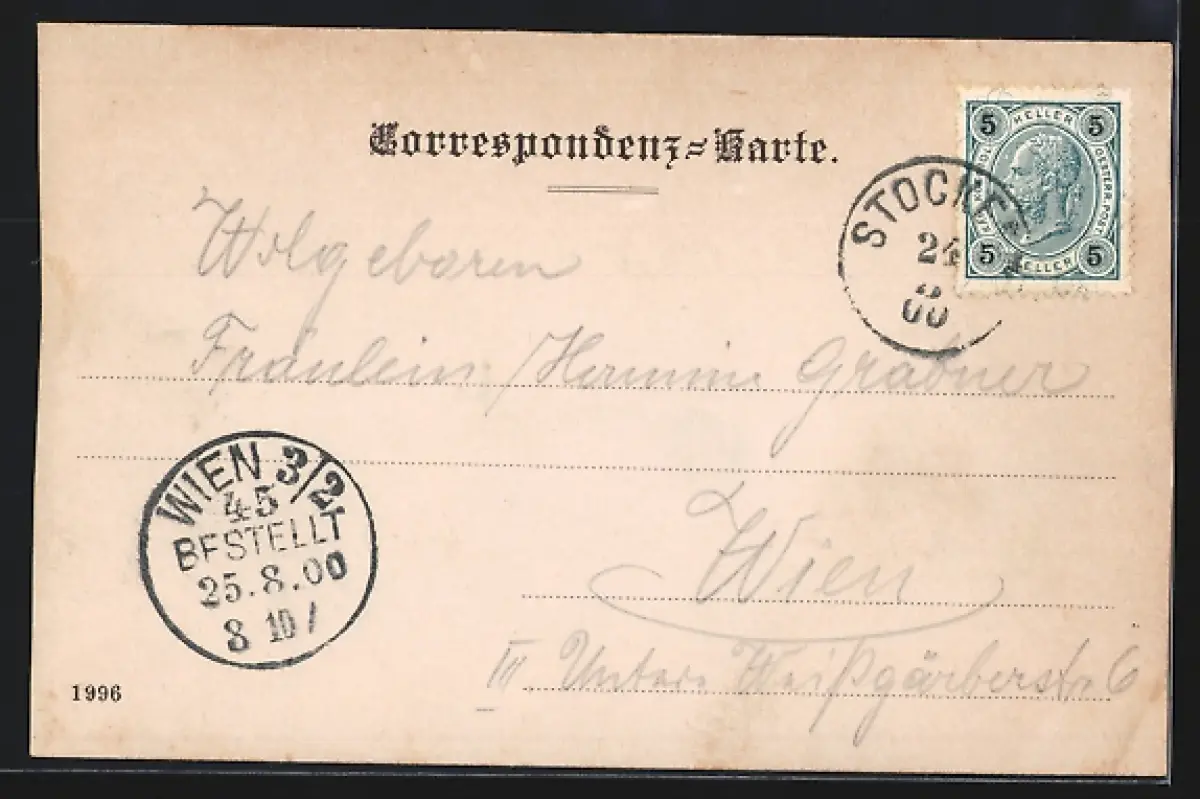 Correspondenz-Karte.
5 HELLER 5
OESTERR. POST
5 HELLER 5
STOCKE
24
8
00
Wolgeboren
Fräulein Hermine Grabner
WIEN 3/2
45
BESTELLT
25.8.00
8 10 /
Wien
III Untere Weißgärberstr. 6
1996